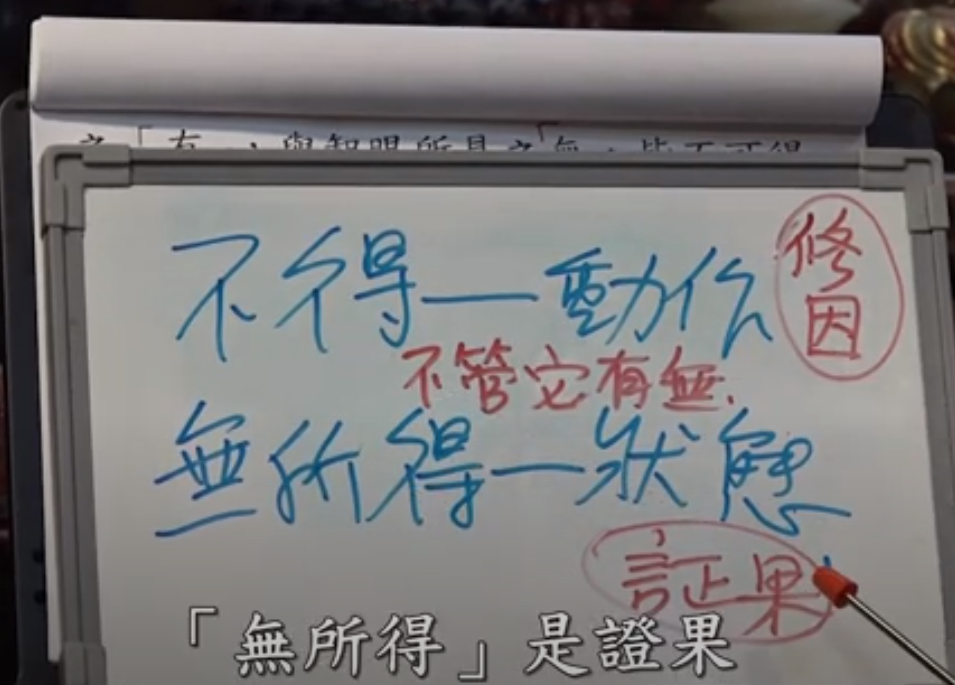 之「有」、與智眼所見之「無，皆不可得
不得—動作
修因
不管它有無.
無所得—狀態
証果
「無所得」是證果